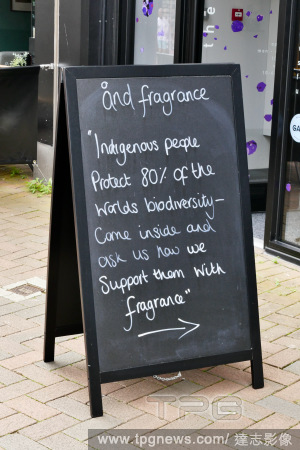 ånd fragrance
"Indigenous people
Protect 80% of the
Worlds biodiversity-
Come inside and
ask us how we
Support them with
fragrance"
the
SA
TPG
TPG
www.tpgnews.com/ 達志影像